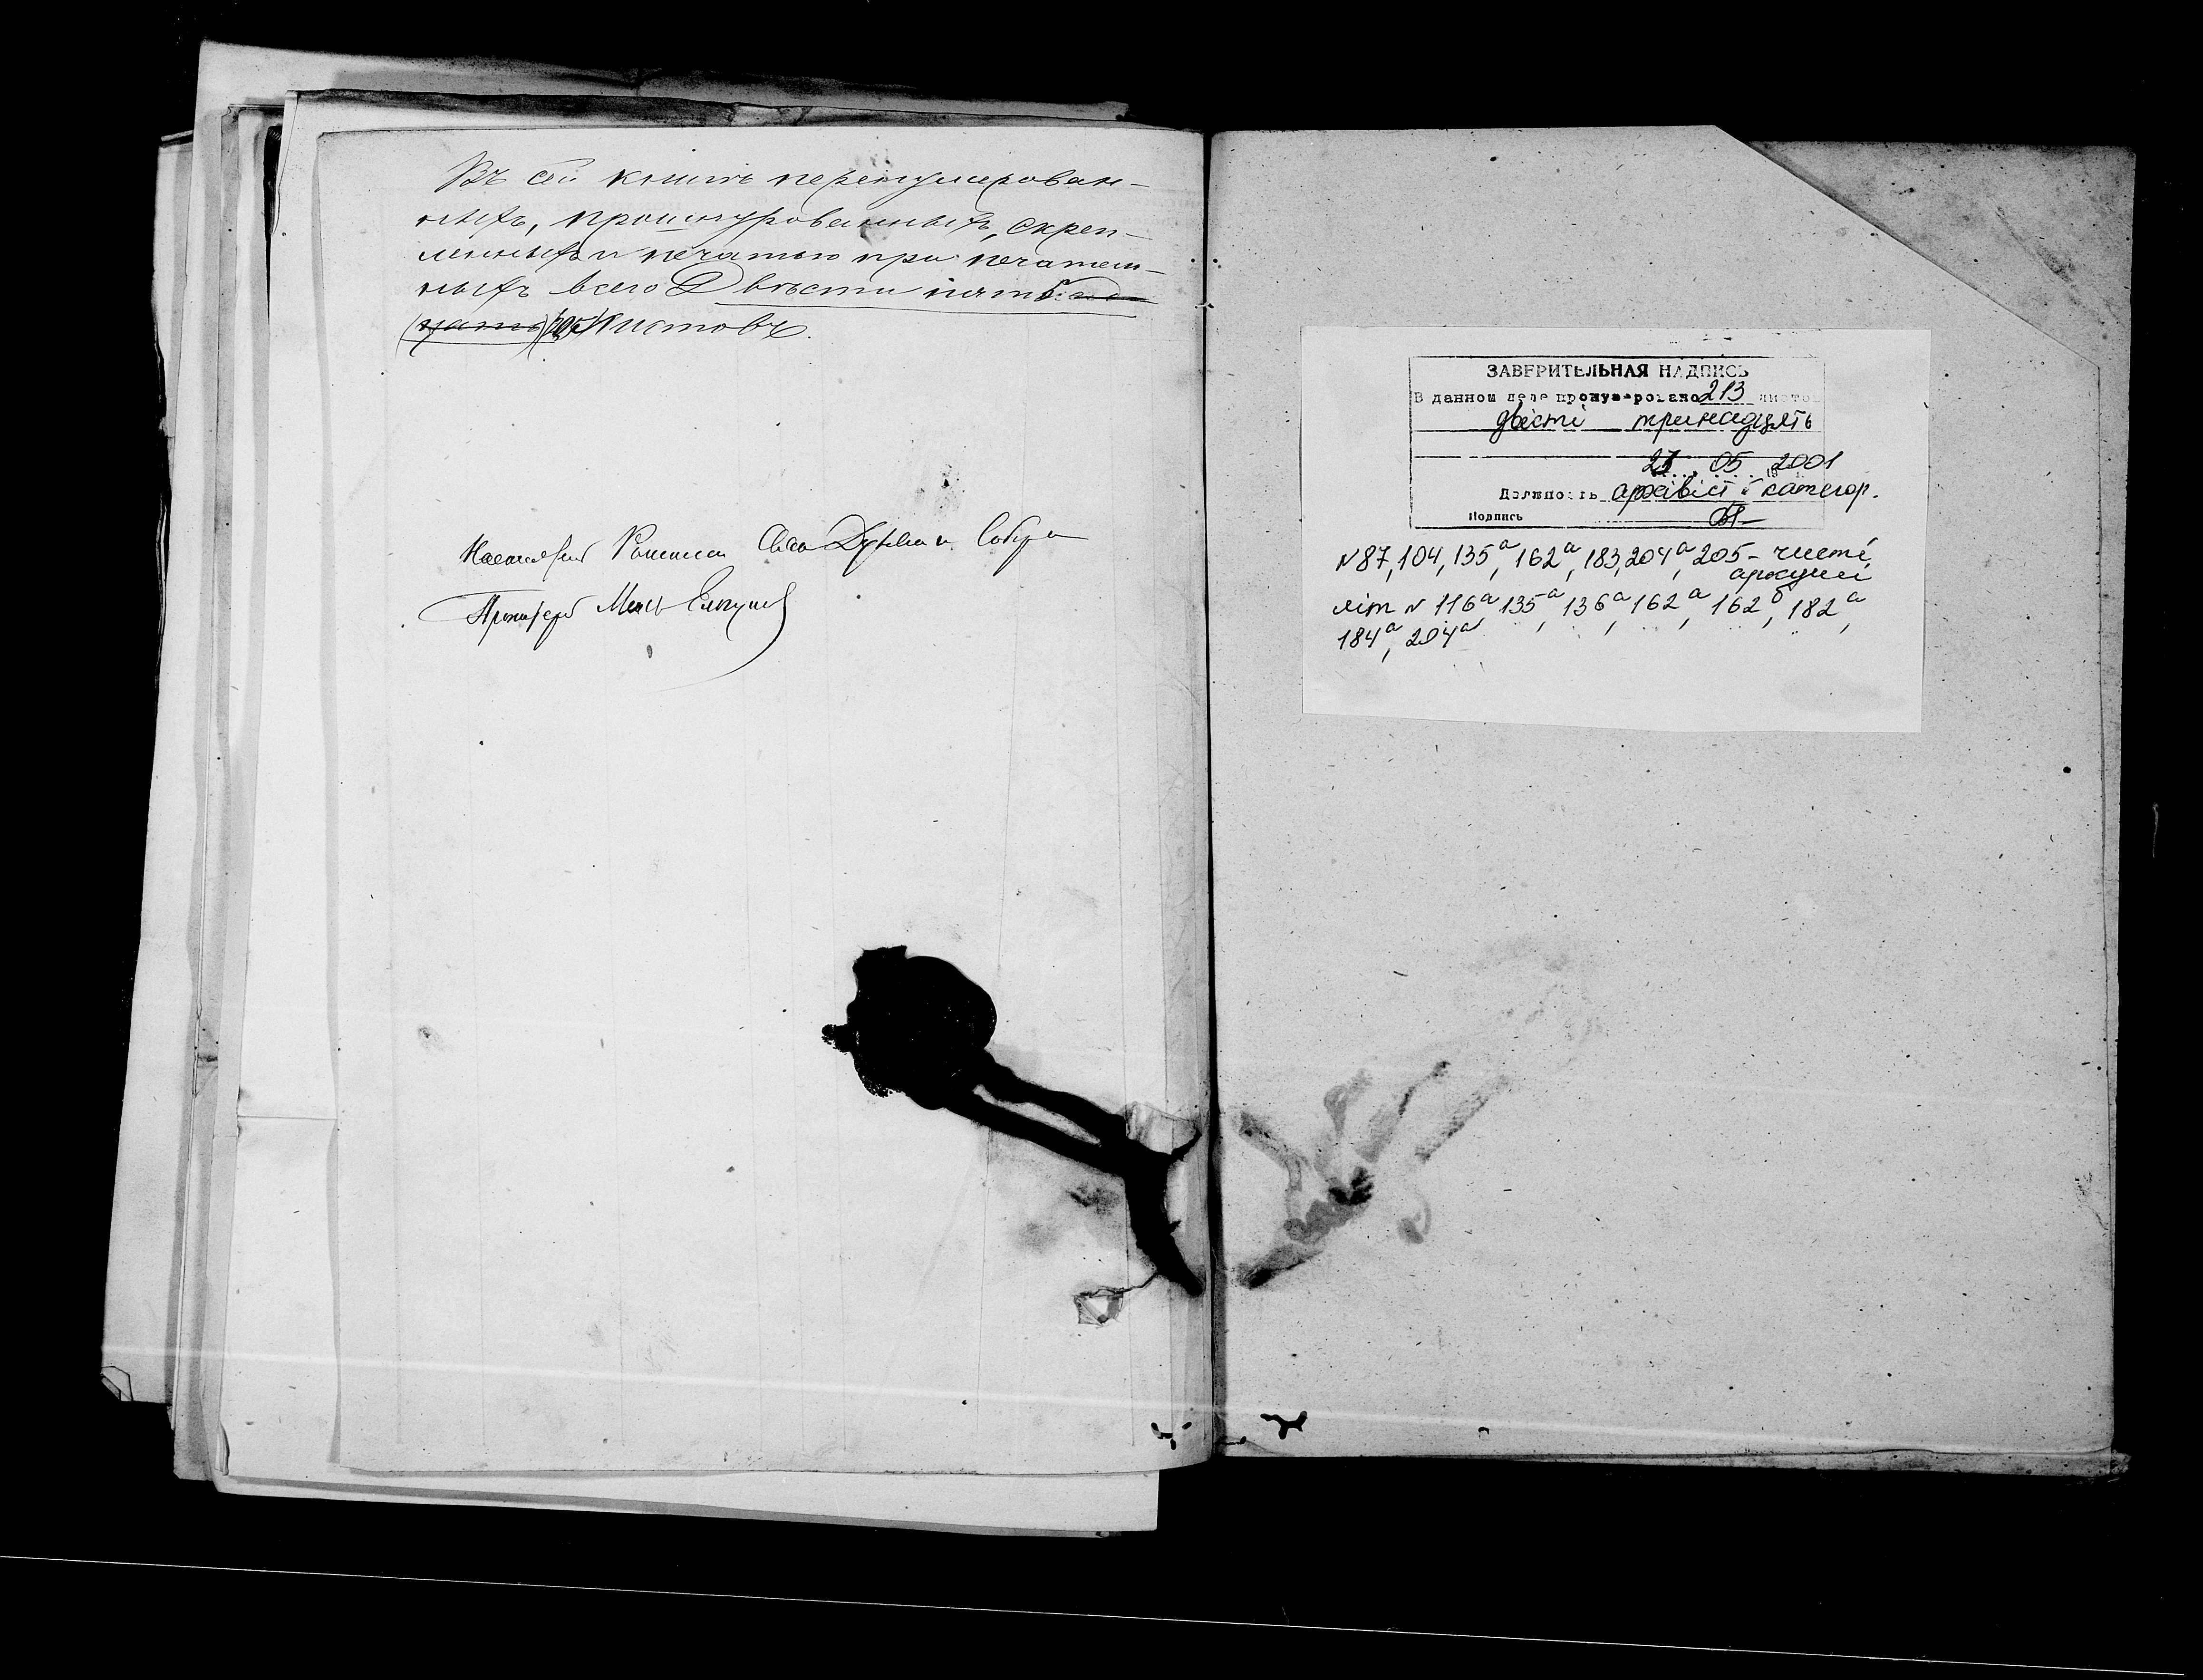 Въ сей книгѣ перенумерован-
ныхъ, прошнурованныхъ, скреп-
ленныхъ и печатью при печатан-
ныхъ всего Двѣсти пять над
цать (205) листовъ.
Настоятель Роменскаго Свято Духовнаго Собора
Протоіерей
ЗАВЕРИТЕЛЬНАЯ НАДПИСЬ
В данном деле пронумеровано 213 листов
двісті тринадцять
21 . 05 . 2001
Должность архівіст категор.
Подпись
№ 87, 104, 135а, 162а, 183, 204а, 205 - чисті
аркуші
літ № 116а, 135а, 136а, 162а, 162б, 182а,
184а, 204а